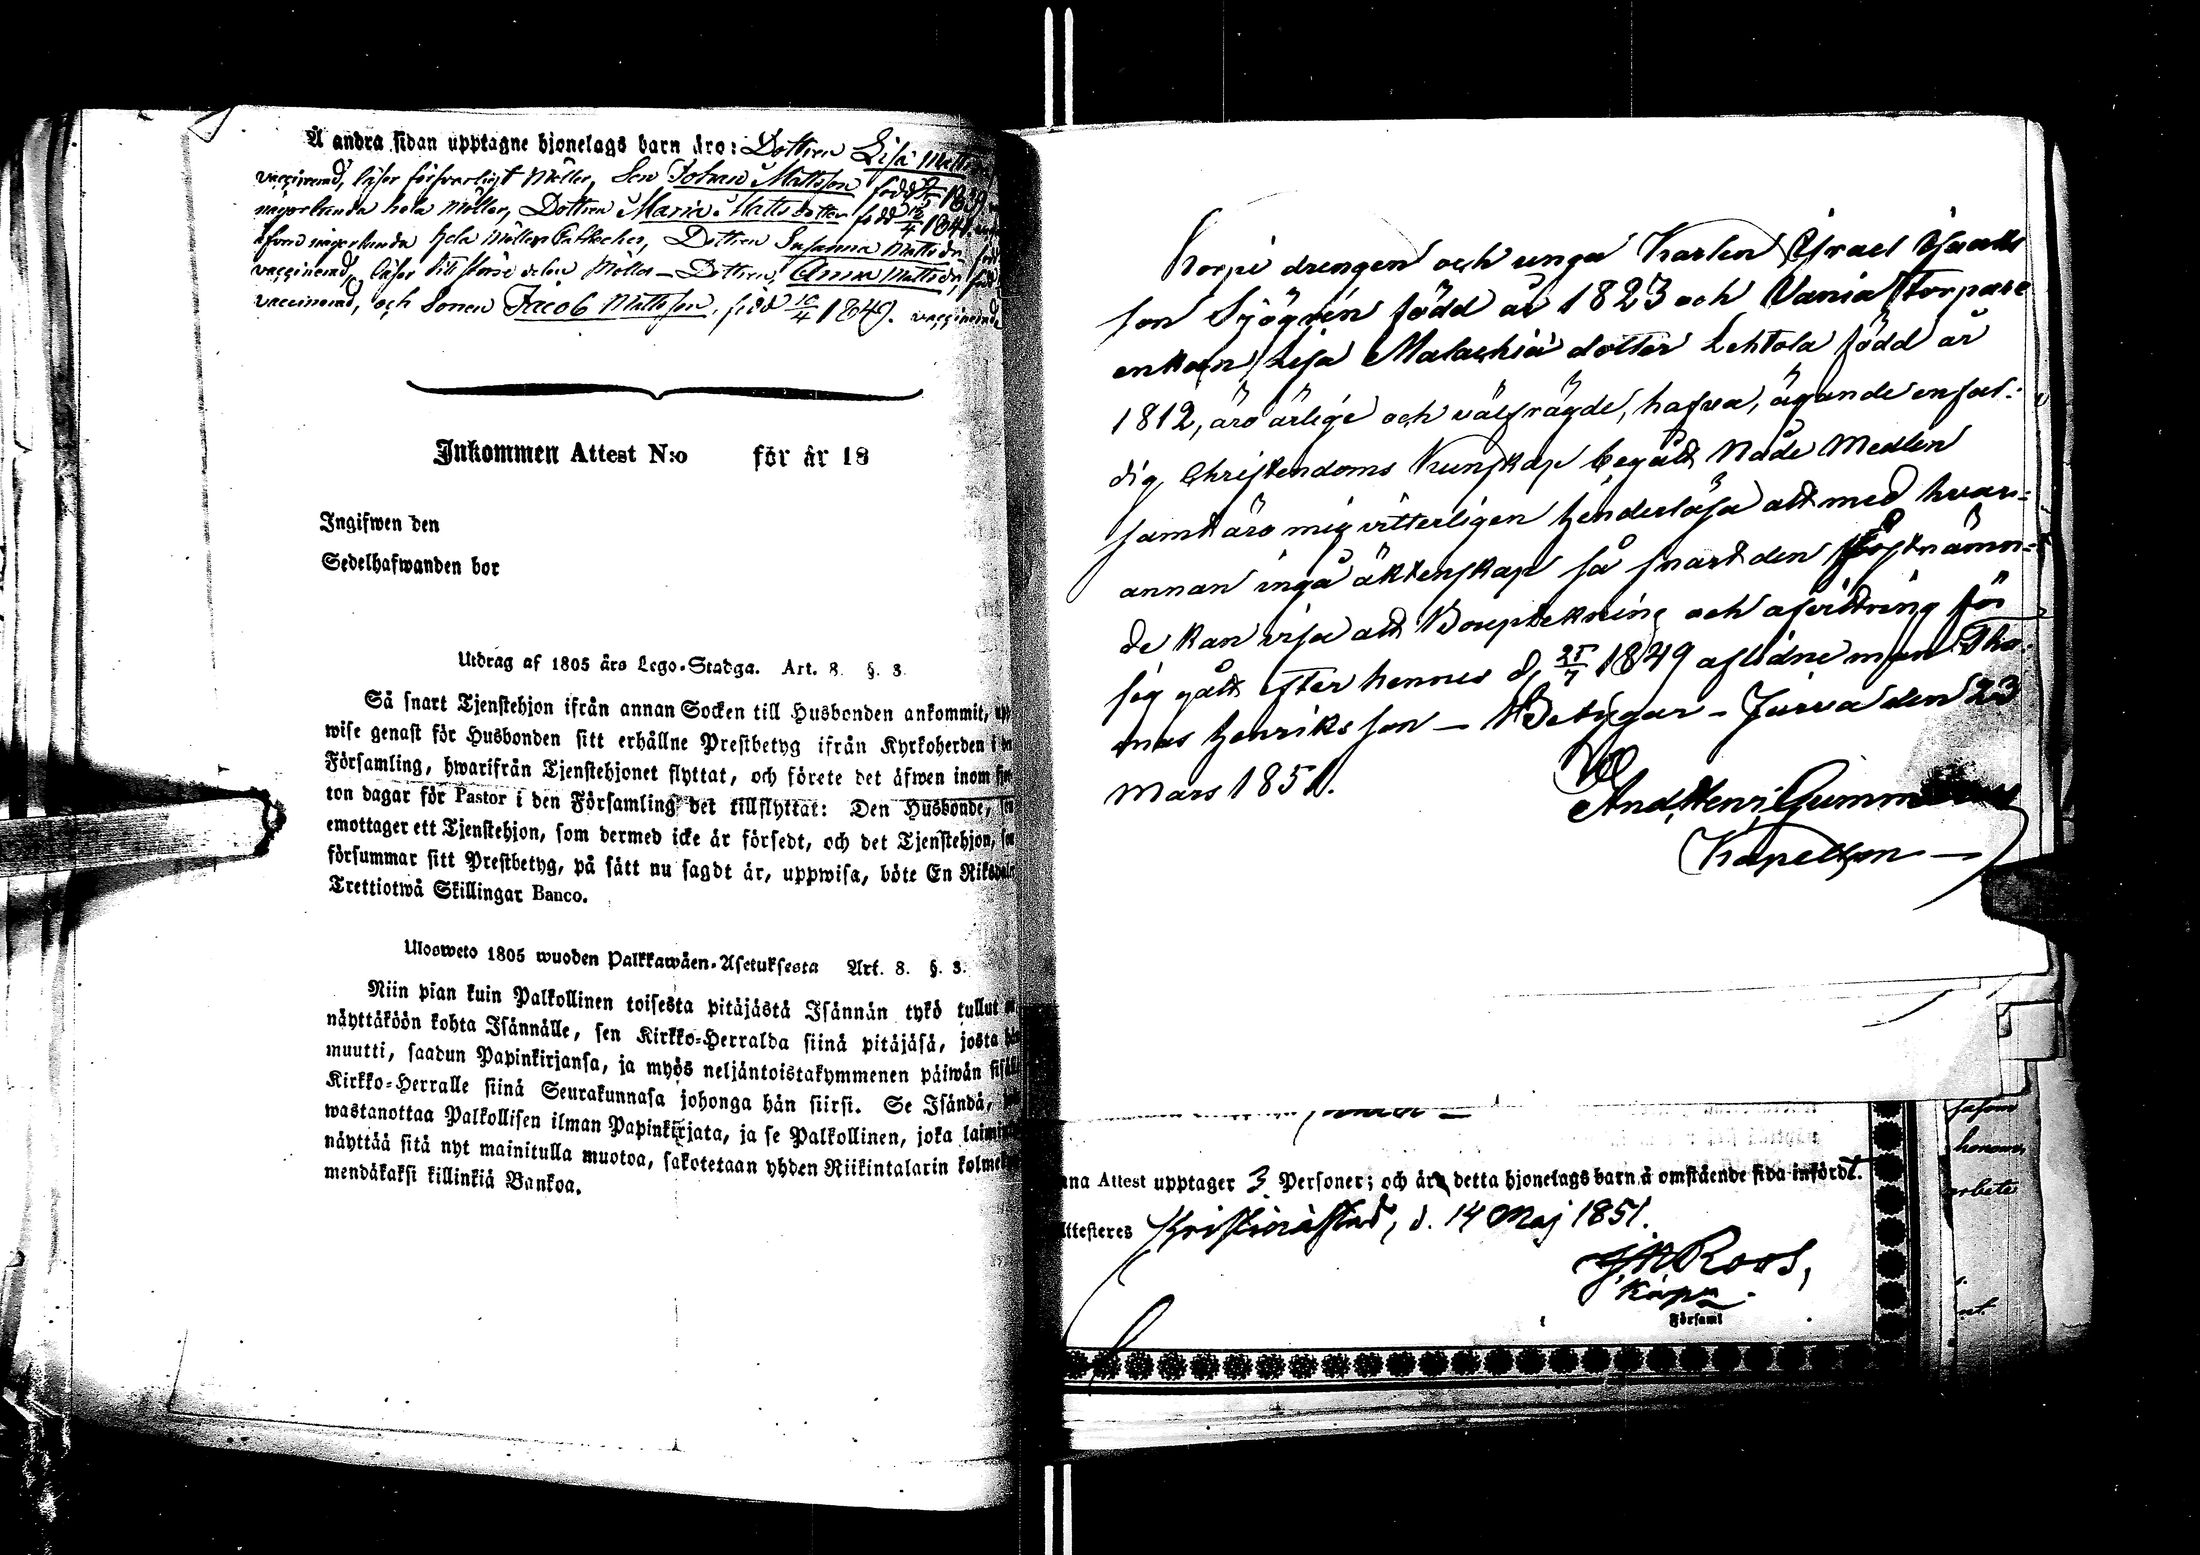 Å andra sidan upptagne hjonelags barn äro: Dottren Lisa
vaccinerad, läser försvarligt Möller, Son Johan Mattsson född 1839
någorlunda hela Möller, Dottren Maria Mattsdotter född 1841
någorlunda hela Möllers Catheches, Dottren Susanna Mattsdr
vaccinerad, läser delen Möller – Dottren Anna Mattsdr
vaccinerad, och Sonen Jacob Mattsson, född 10/4 1849. vaccinerad
Inkommen Attest N:o för år 18
Ingifwen den
Sedelhafwanden bor
Utdrag af 1805 års Lego-Stadga. Art. 8. §. 3.
Så snart Tjenstehjon ifrån annan Socken till Husbonden ankommit,
wise genast för Husbonden sitt erhållne Prestbetyg ifrån Kyrkoherden i
Församling, hwarifrån Tjenstehjonet flyttat, och förete det äfwen inom
ton dagar för Pastor i den Församling det tillflyttat: Den Husbonde,
emottager ett Tjenstehjon, som dermed icke är försedt, och det Tjenstehjon,
försummar sitt Prestbetyg, på sätt nu sagdt är, uppwisa, böte En
Trettiotwå Skillingar Banco.
Ulosweto 1805 wuoden Palkkawäen-Asetuksesta Art. 8. §. 3.
Niin pian kuin Palkollinen toisesta pitäjästä Isännän tykö tullut
näyttäköön kohta Isännälle, sen Kirkko-Herralda siinä pitäjäsä, josta
muutti, saadun Papinkirjansa, ja myös neljäntoistakymmenen päiwän
Kirkko-Herralle siinä Seurakunnasa johonga hän siirsi. Se Isändä,
wastanottaa Palkollisen ilman Papinkirjata, ja se Palkollinen, joka
näyttää sitä nyt mainitulla muotoa, sakotetaan yhden Riikintalarin
mendäkaksi killinkiä Bankoa.
Korpi drengen och unga Karlen Israel Isaaks
son Sjögren född år 1823 och Vania Torpare
enkan Lisa Malachia dotter Lehtola född år
1812, äro ärlige och välfrägde, hafva, ägande enfal-
dig Christendoms Kunskap begått Nåde Medlen
samt äro mig vitterligen hinderlösa att med hvar-
annan ingå äktenskap så snart den sistnämn-
de kan visa att Bouptekning och afvittring för
sig gått efter hennes d. 1849 aflidne man Tho
mas Henriksson – Betygar – Jurva den 23
Mars 1851.
And. Henr.
Kapellan –
nna Attest upptager 3 Personer; och är detta hjonelags barn å omstående sida infördt.
ttesteres Kristinæstad, d. 14 Maj 1851.
Roos,
Kapn
Församl